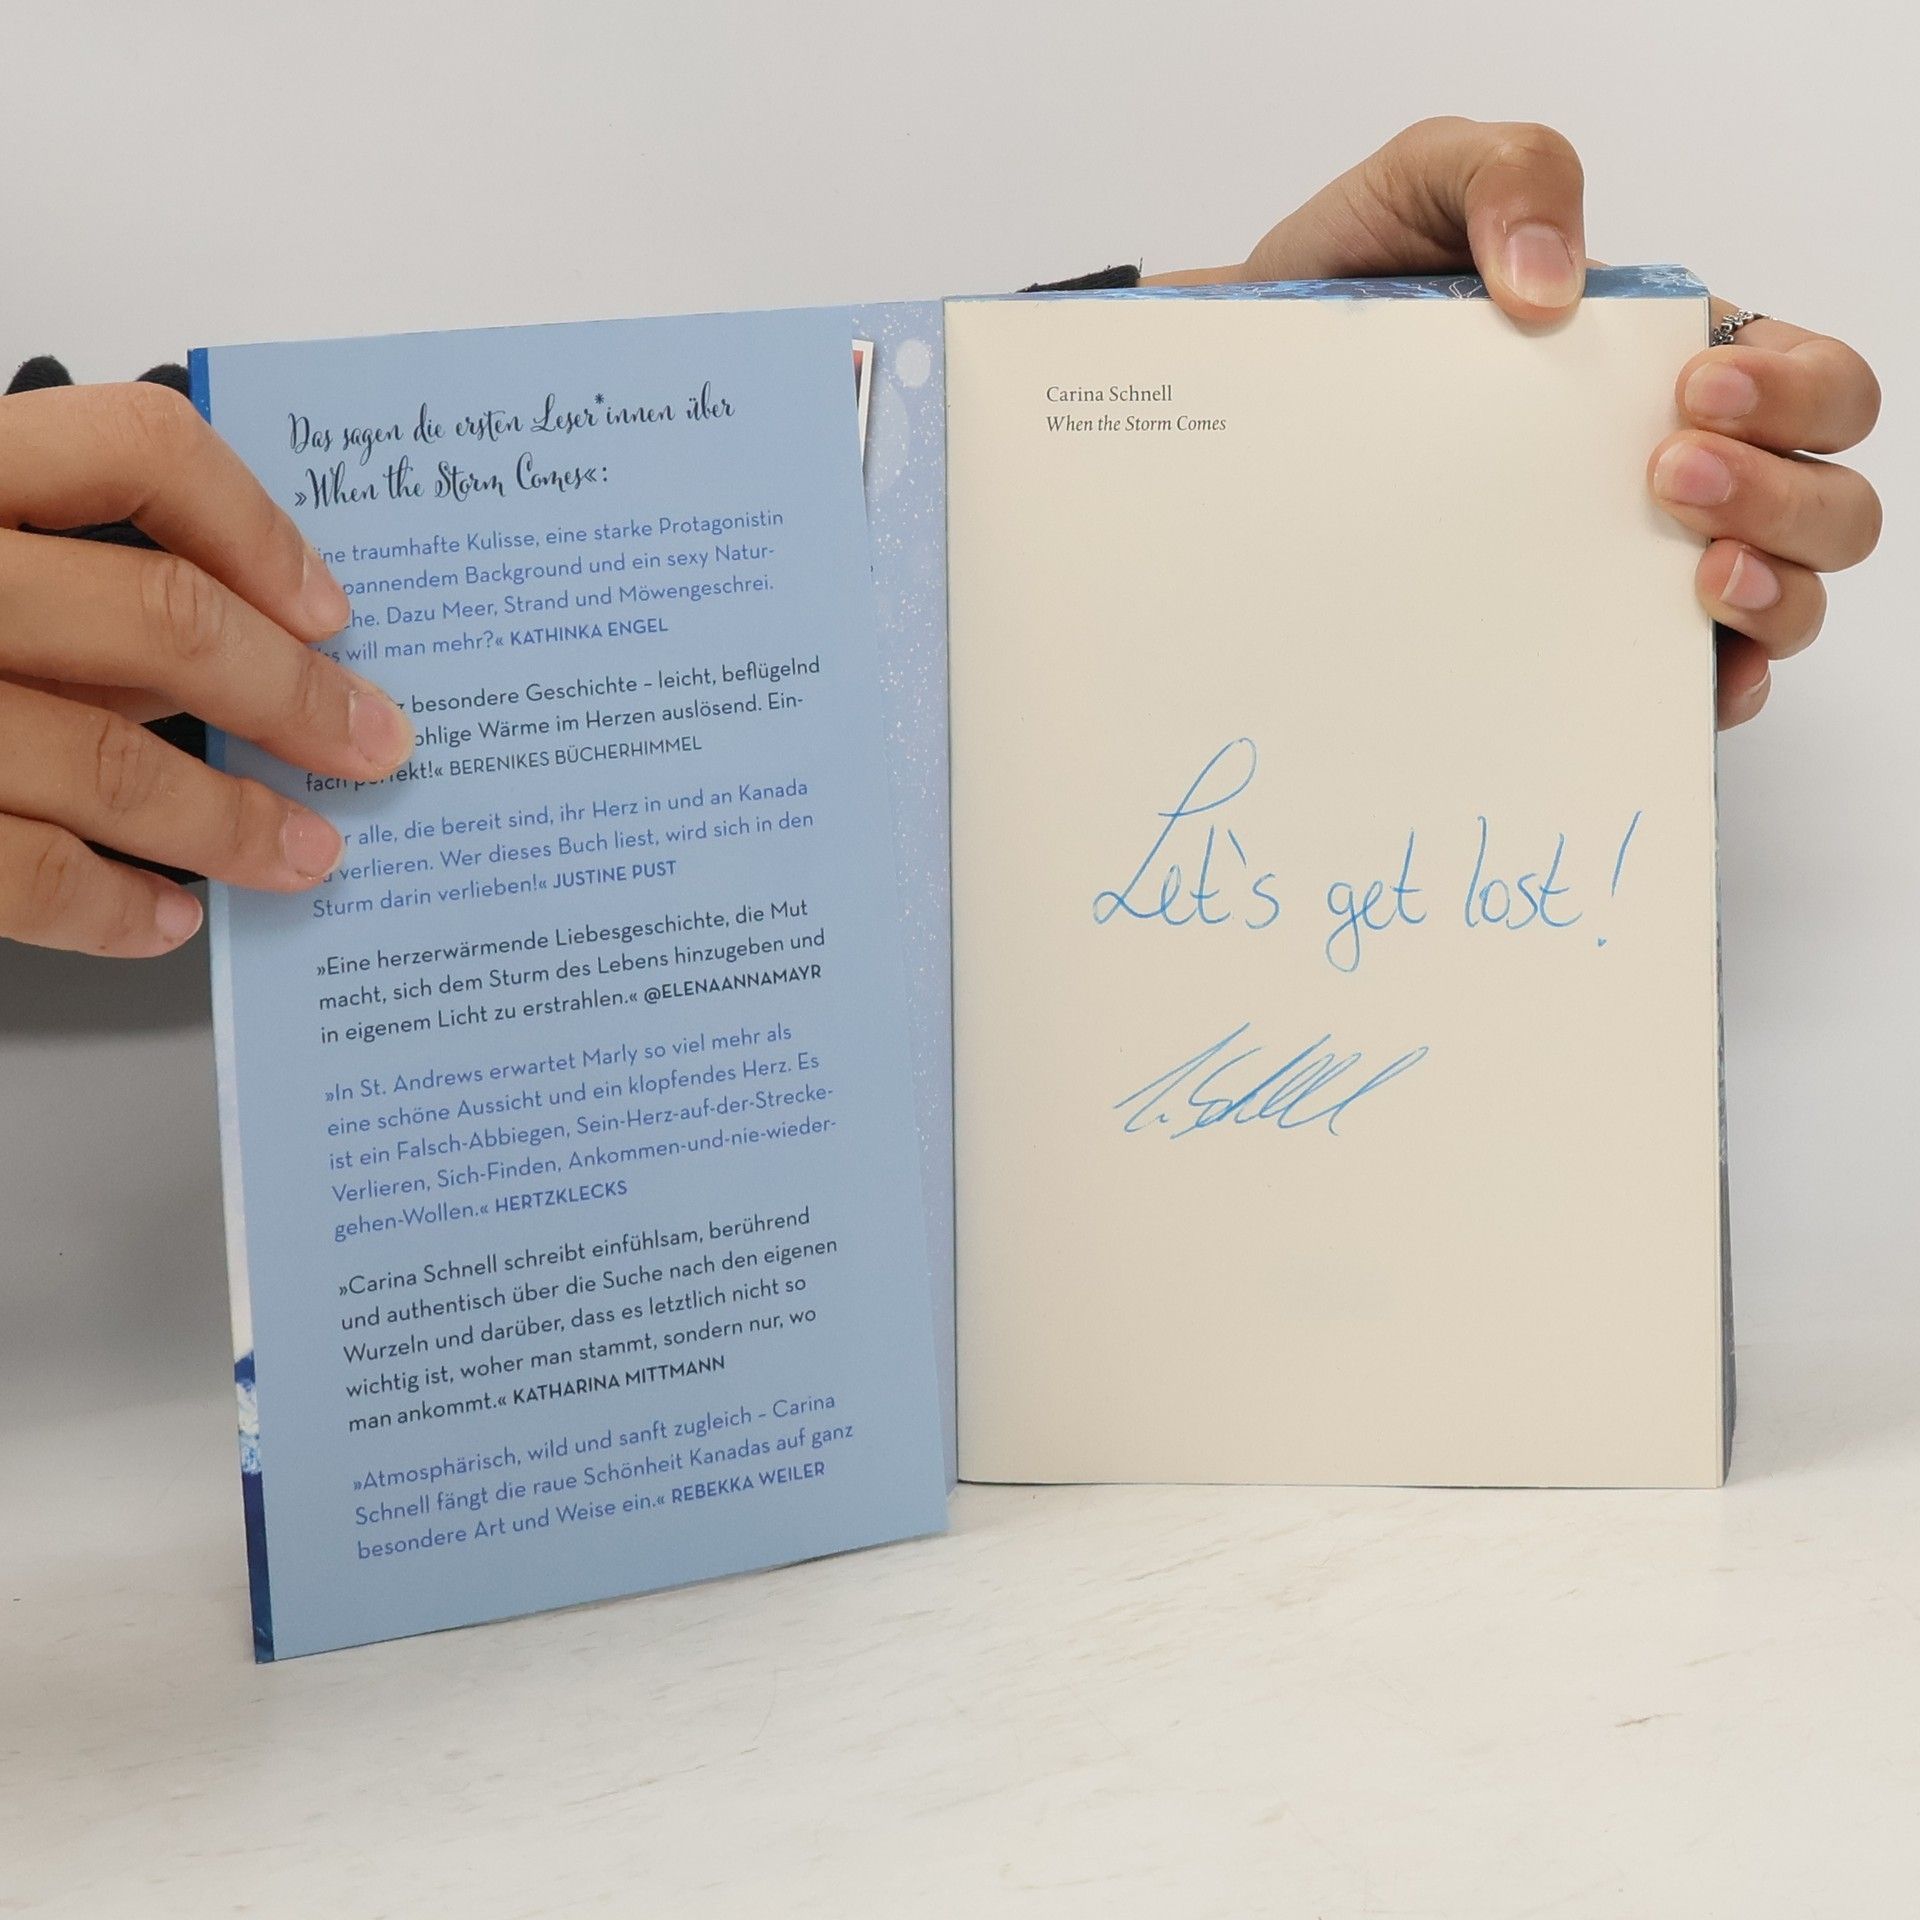 Das sagen die ersten Leser*innen über
»When the Storm Comes«:
traumhafte Kulisse, eine starke Protagonistin
Background und ein sexy Natur-
Dazu Meer, Strand und Möwengeschrei.
will man mehr?« KATHINKA ENGEL
besondere Geschichte – leicht, beflügelnd
Wärme im Herzen auslösend. Ein-
fach BERENIKES BÜCHERHIMMEL
alle, die bereit sind, ihr Herz in und an Kanada
verlieren. Wer dieses Buch liest, wird sich in den
Sturm darin verlieben!« JUSTINE PUST
»Eine herzerwärmende Liebesgeschichte, die Mut
macht, sich dem Sturm des Lebens hinzugeben und
in eigenem Licht zu erstrahlen.« @ELENAANNAMAYR
»In St. Andrews erwartet Marly so viel mehr als
eine schöne Aussicht und ein klopfendes Herz. Es
ist ein Falsch-Abbiegen, Sein-Herz-auf-der-Strecke-
Verlieren, Sich-Finden, Ankommen-und-nie-wieder-
gehen-Wollen.« HERTZKLECKS
»Carina Schnell schreibt einfühlsam, berührend
und authentisch über die Suche nach den eigenen
Wurzeln und darüber, dass es letztlich nicht so
wichtig ist, woher man stammt, sondern nur, wo
man ankommt.« KATHARINA MITTMANN
»Atmosphärisch, wild und sanft zugleich – Carina
Schnell fängt die raue Schönheit Kanadas auf ganz
besondere Art und Weise ein.« REBEKKA WEILER
Carina Schnell
When the Storm Comes
Let's get lost!